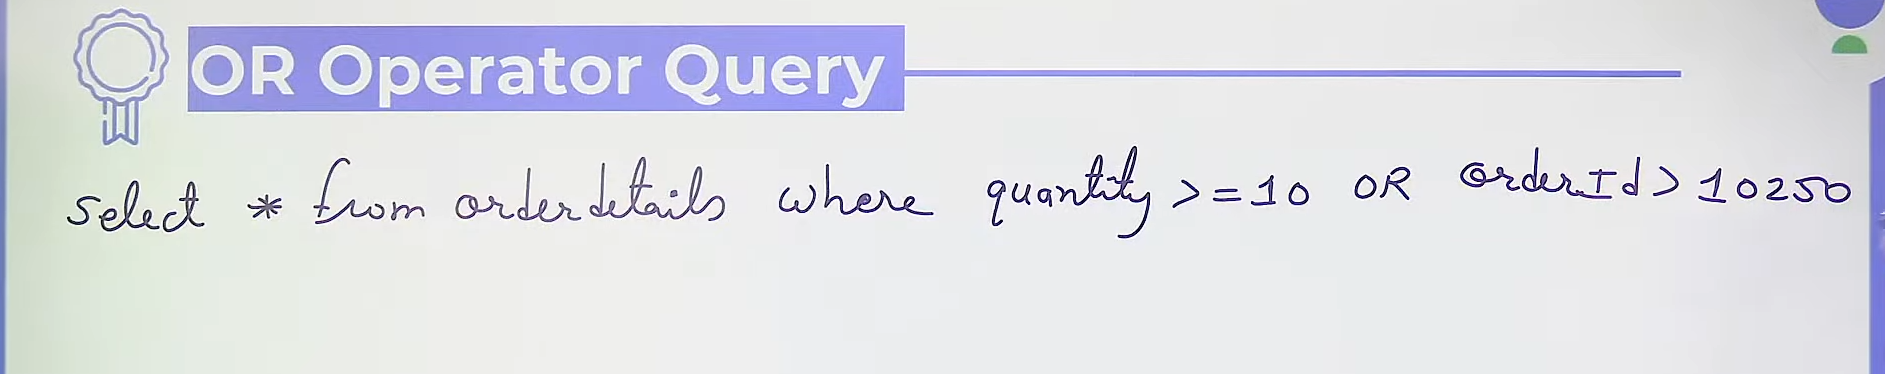 OR Operator Query
select * from orderdetails where quantity >= 10 OR orderId > 10250